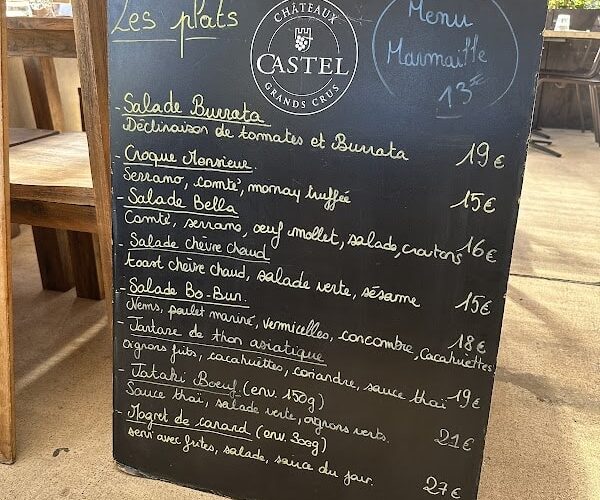 Les plats
CHÂTEAUX
CASTEL
GRANDS CRUS
Menu
Marmaille
13€
- Salade Burrata
Déclinaison de tomates et Burrata 19€
- Croque Monsieur
Serrano, comté, mornay truffée 15€
- Salade Bella
Comté, serrano, œuf mollet, salade, croutons 16€
- Salade chèvre chaud
toast chèvre chaud, salade verte, sésame 15€
- Salade Bo-Bun.
Nems, poulet mariné, vermicelles, concombre, cacahuettes 18€
- Tartare de thon asiatique
oignons frits, cacahuettes, coriandre, sauce thaï 19€
- Tataki Boeuf (env. 150g)
Sauce thaï, salade verte, oignons verts. 21€
- Magret de canard (env. 300g)
servi avec frites, salade, sauce du jour. 27€